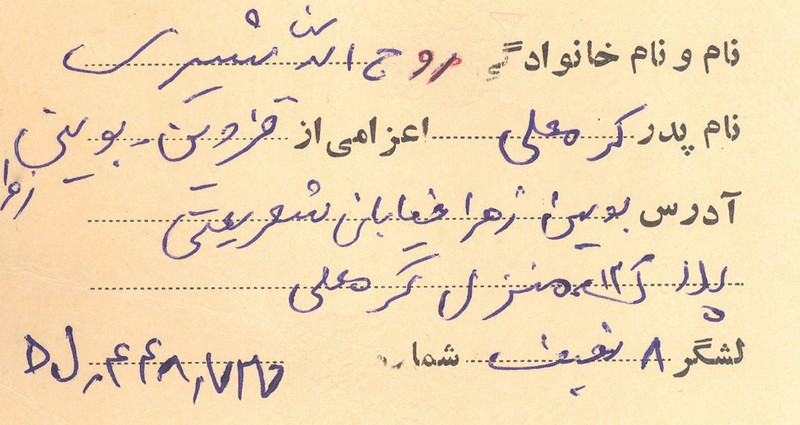 نام و نام خانوادگی روح الله شیری
نام پدر کرمعلی اعزامی از قزوین - بوئین زهرا
آدرس بوئین زهرا خیابان شعریعتی
پلاک ۱۲ منزل کرمعلی
لشگر ۸ نجف شماره